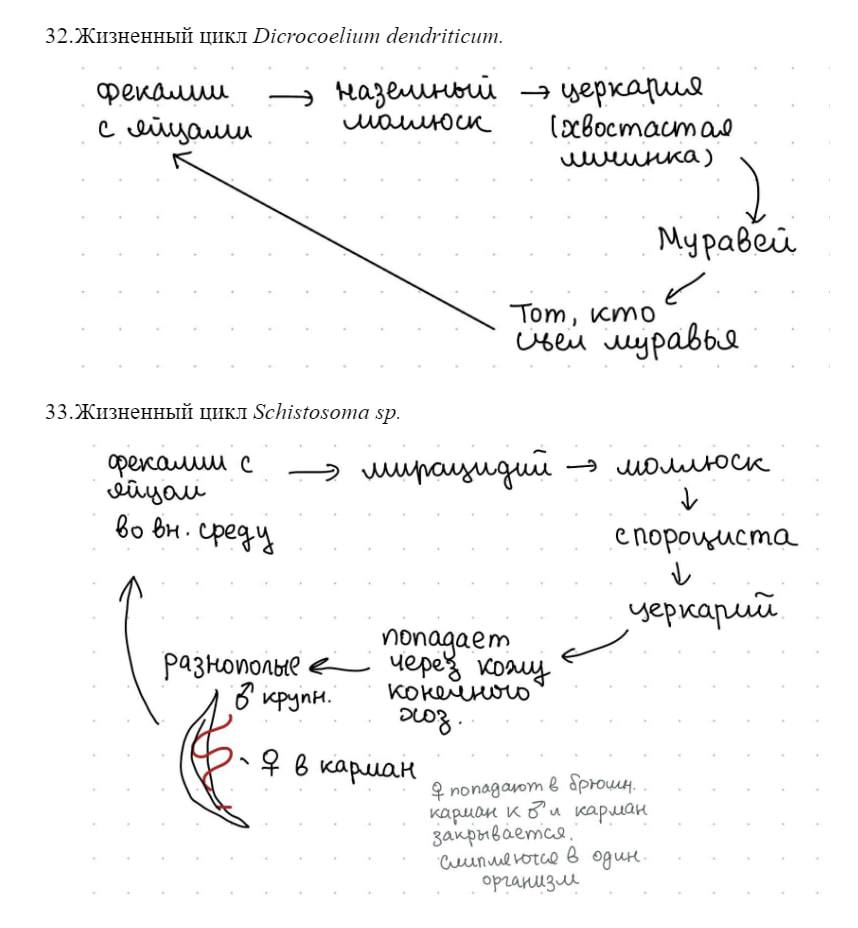 32.Жизненный цикл Dicrocoelium dendriticum.
фекалии → наземный → церкария
с яйцами моллюск (хвостастая
личинка)
Муравей
Тот, кто
съел муравья
33.Жизненный цикл Schistosoma sp.
фекалии с → мирацидий → моллюск
яйцом
во вн. среду
спороциста
церкарий
попадает
через кожу
конечного
хоз.
разнополые
♂ крупн.
♀ в карман
♀ попадают в брюшн.
карман к ♂ и карман
закрывается.
Слипляются в один
организм